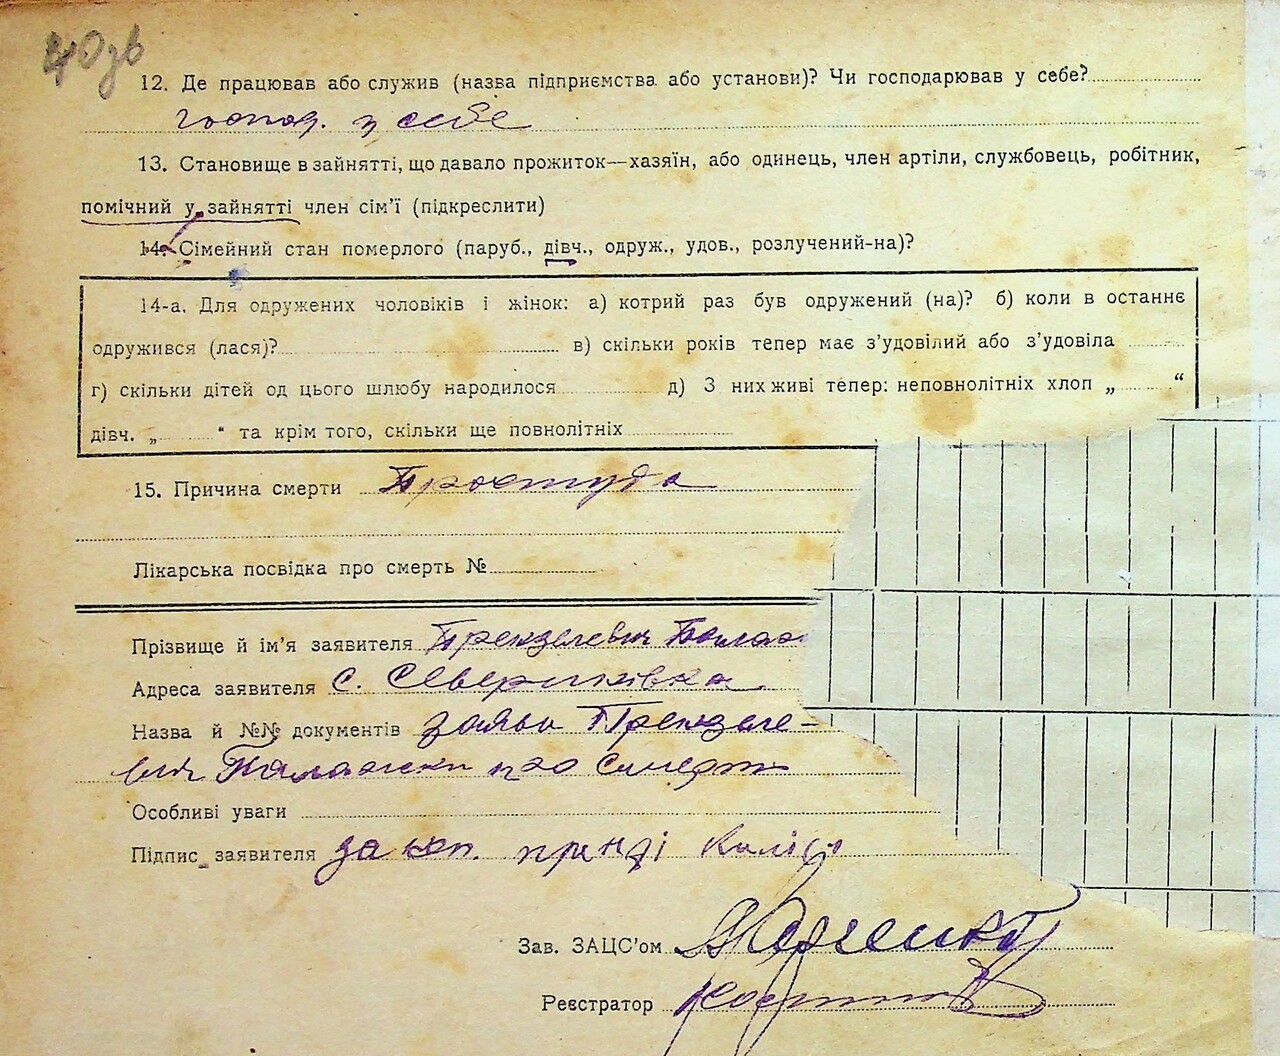 40зв
12. Де працював або служив (назва підприємства або установи)? Чи господарював у себе?
господ. у себе
13. Становище в зайнятті, що давало прожиток—хазяїн, або одинець, член артіли, службовець, робітник,
помічний у зайнятті член сім'ї (підкреслити)
14. Сімейний стан померлого (паруб., дівч., одруж., удов., розлучений-на)?
14-а. Для одружених чоловіків і жінок: а) котрий раз був одружений (на)? б) коли в останнє
одружився (лася)? в) скільки років тепер має з'удовілий або з'удовіла
г) скільки дітей од цього шлюбу народилося д) З них живі тепер: неповнолітніх хлоп „ “
дівч. „ “ та крім того, скільки ще повнолітніх
15. Причина смерти Простуда
Лікарська посвідка про смерть №
Прізвище й ім'я заявителя
Адреса заявителя с. Северинівка
Назва й №№ документів заява
про смерть
Особливі уваги
Підпис заявителя за
Зав. ЗАЦС'ом
Реєстратор